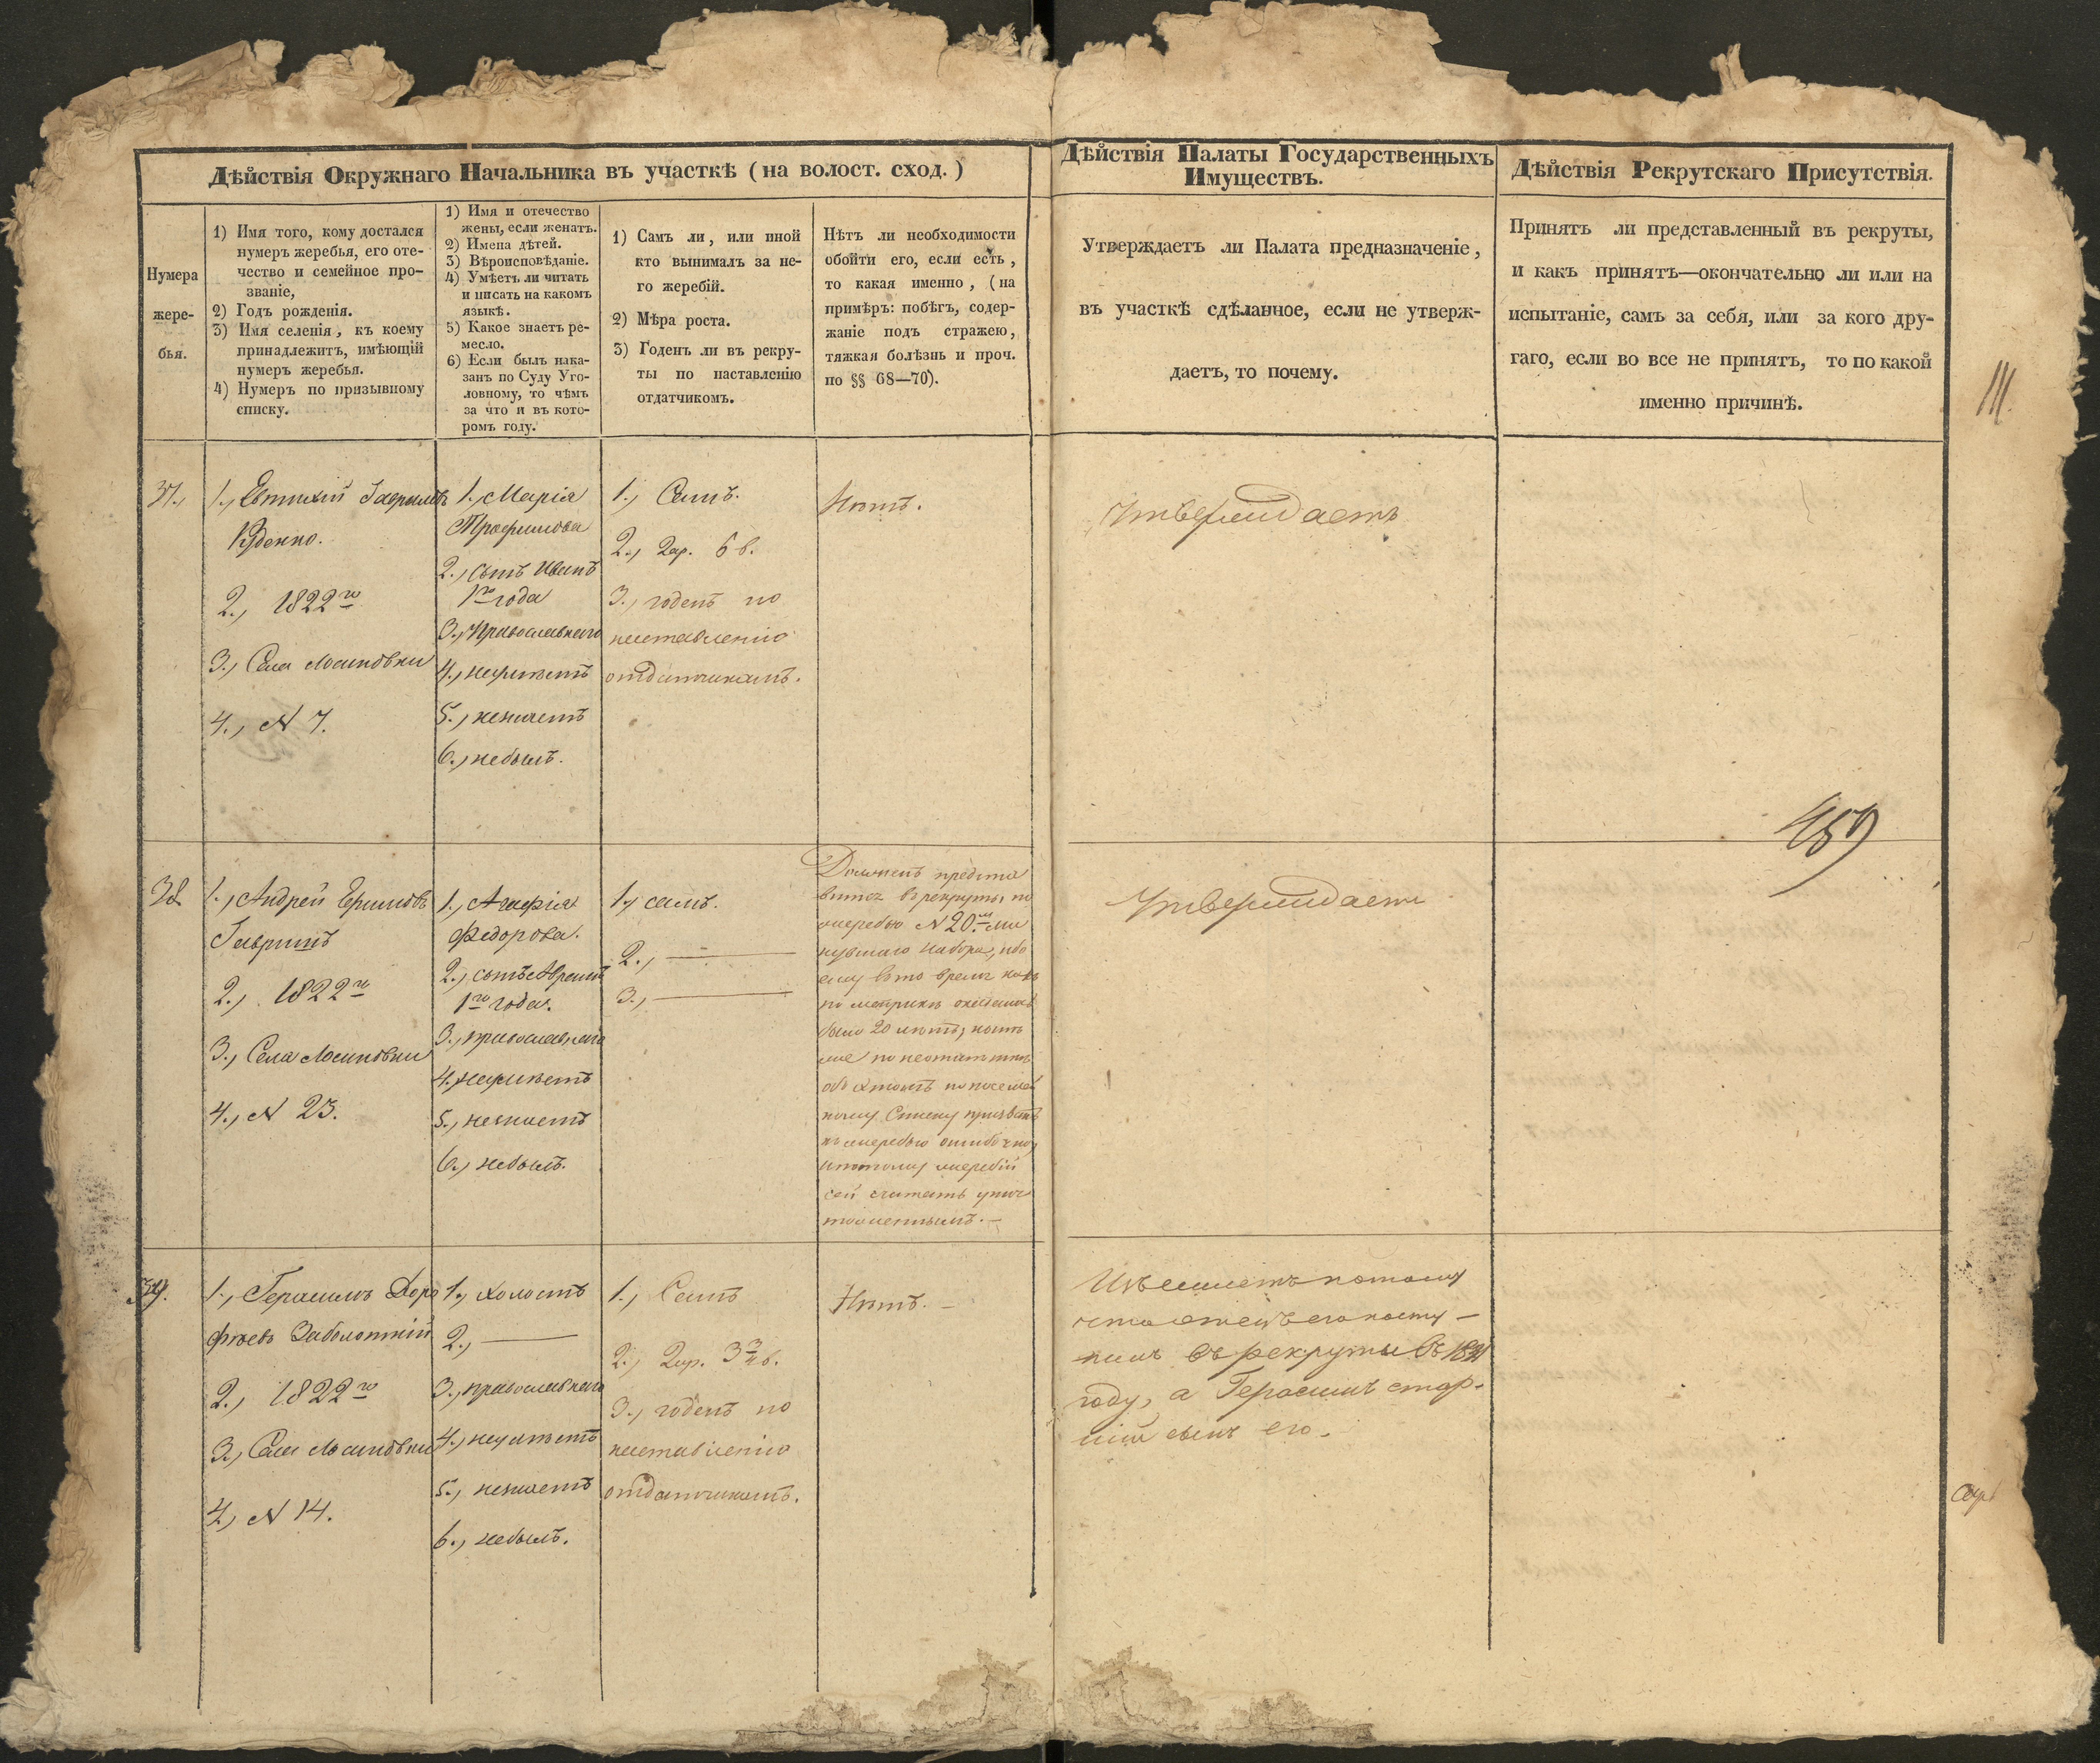 Дѣйствія Окружнаго Начальника въ участкѣ (на волост. сход.)
Нумера
жере-
бья.
1) Имя того, кому достался
нумеръ жеребья, его оте-
чество и семейное про-
званіе,
2) Годъ рожденія.
3) Имя селенія, къ коему
принадлежитъ, имѣющій
нумеръ жеребья.
4) Нумеръ по призывному
списку.
1) Имя и отечество
жены, если женатъ.
2) Имена дѣтей.
3) Вѣроисповѣданіе.
4) Умѣетъ ли читать
и писать на какомъ
языкѣ.
5) Какое знаетъ ре-
месло.
6) Если былъ нака-
занъ по Суду Уго-
ловному, то чѣмъ
за что и въ кото-
ромъ году.
1) Самъ ли, или иной
кто вынималъ за не-
го жеребій.
2) Мѣра роста.
3) Годенъ ли въ рекру-
ты по наставленію
отдатчикомъ.
Нѣтъ ли необходимости
обойти его, если есть,
то какая именно, (на
примѣръ: побѣгъ, содер-
жаніе подъ стражею,
тяжкая болѣзнь и проч.
по §§ 68—70).
Дѣйствія Палаты Государственныхъ
Имуществъ.
Утверждаетъ ли Палата предназначеніе,
въ участкѣ сдѣланное, если не утверж-
даетъ, то почему.
Дѣйствія Рекрутскаго Присутствія.
Принятъ ли представленный въ рекруты,
и какъ принятъ—окончательно ли или на
испытаніе, самъ за себя, или за кого дру-
гаго, если во все не принятъ, то по какой
именно причинѣ.
111.
37.,
1., Евтихій Гавриловъ
2., 1822го
3., Села Лосиновки
4., N 7.
1., Марія
Трофимова
2., сынъ Иванъ
1го года
3., православнаго
4., неумѣетъ
5., незнаетъ
6., небылъ.
1., Самъ.
2., 2ар. 6 в.
3., годенъ по
наставленію
отдатчикамъ.
Нѣтъ.
Утверждаетъ
459
38
1., Андрей Ермиловъ
2., 1822го
3., Села Лосиновки
4., N 23.
1., Агафія
Федорова.
2., сынъ
1го года.
3., православнаго
4., неумѣетъ
5., незнаетъ
6., небылъ.
1., самъ.
2., —
3., —
Долженъ предста
вится въ рекруты по
жеребью N 20му ми
нувшаго набора, ибо
ему въ то время какъ
по метрикѣ оказалось
было 20 лѣтъ,
обь этомъ по посемей
ному Списку призванъ
къ жеребью ошибочно,
и потому жеребій
сей считать унич
тоженнымъ.—
Утверждаетъ
39.
1., Герасимъ Доро
фѣевъ Заболотній
2., 1822го
3., Села Лосиновки
4., N 14.
1., холостъ
2., —
3., православнаго
4., неумѣетъ
5., незнаетъ
6., небылъ.
1., Самъ
2., 2ар. 3 3/4 в.
3., годенъ по
наставленію
отдатчикамъ.
Нѣтъ.—
потому
что отецъ его посту-
пилъ въ рекруты въ
году, а Герасимъ стар-
шій сынъ его.